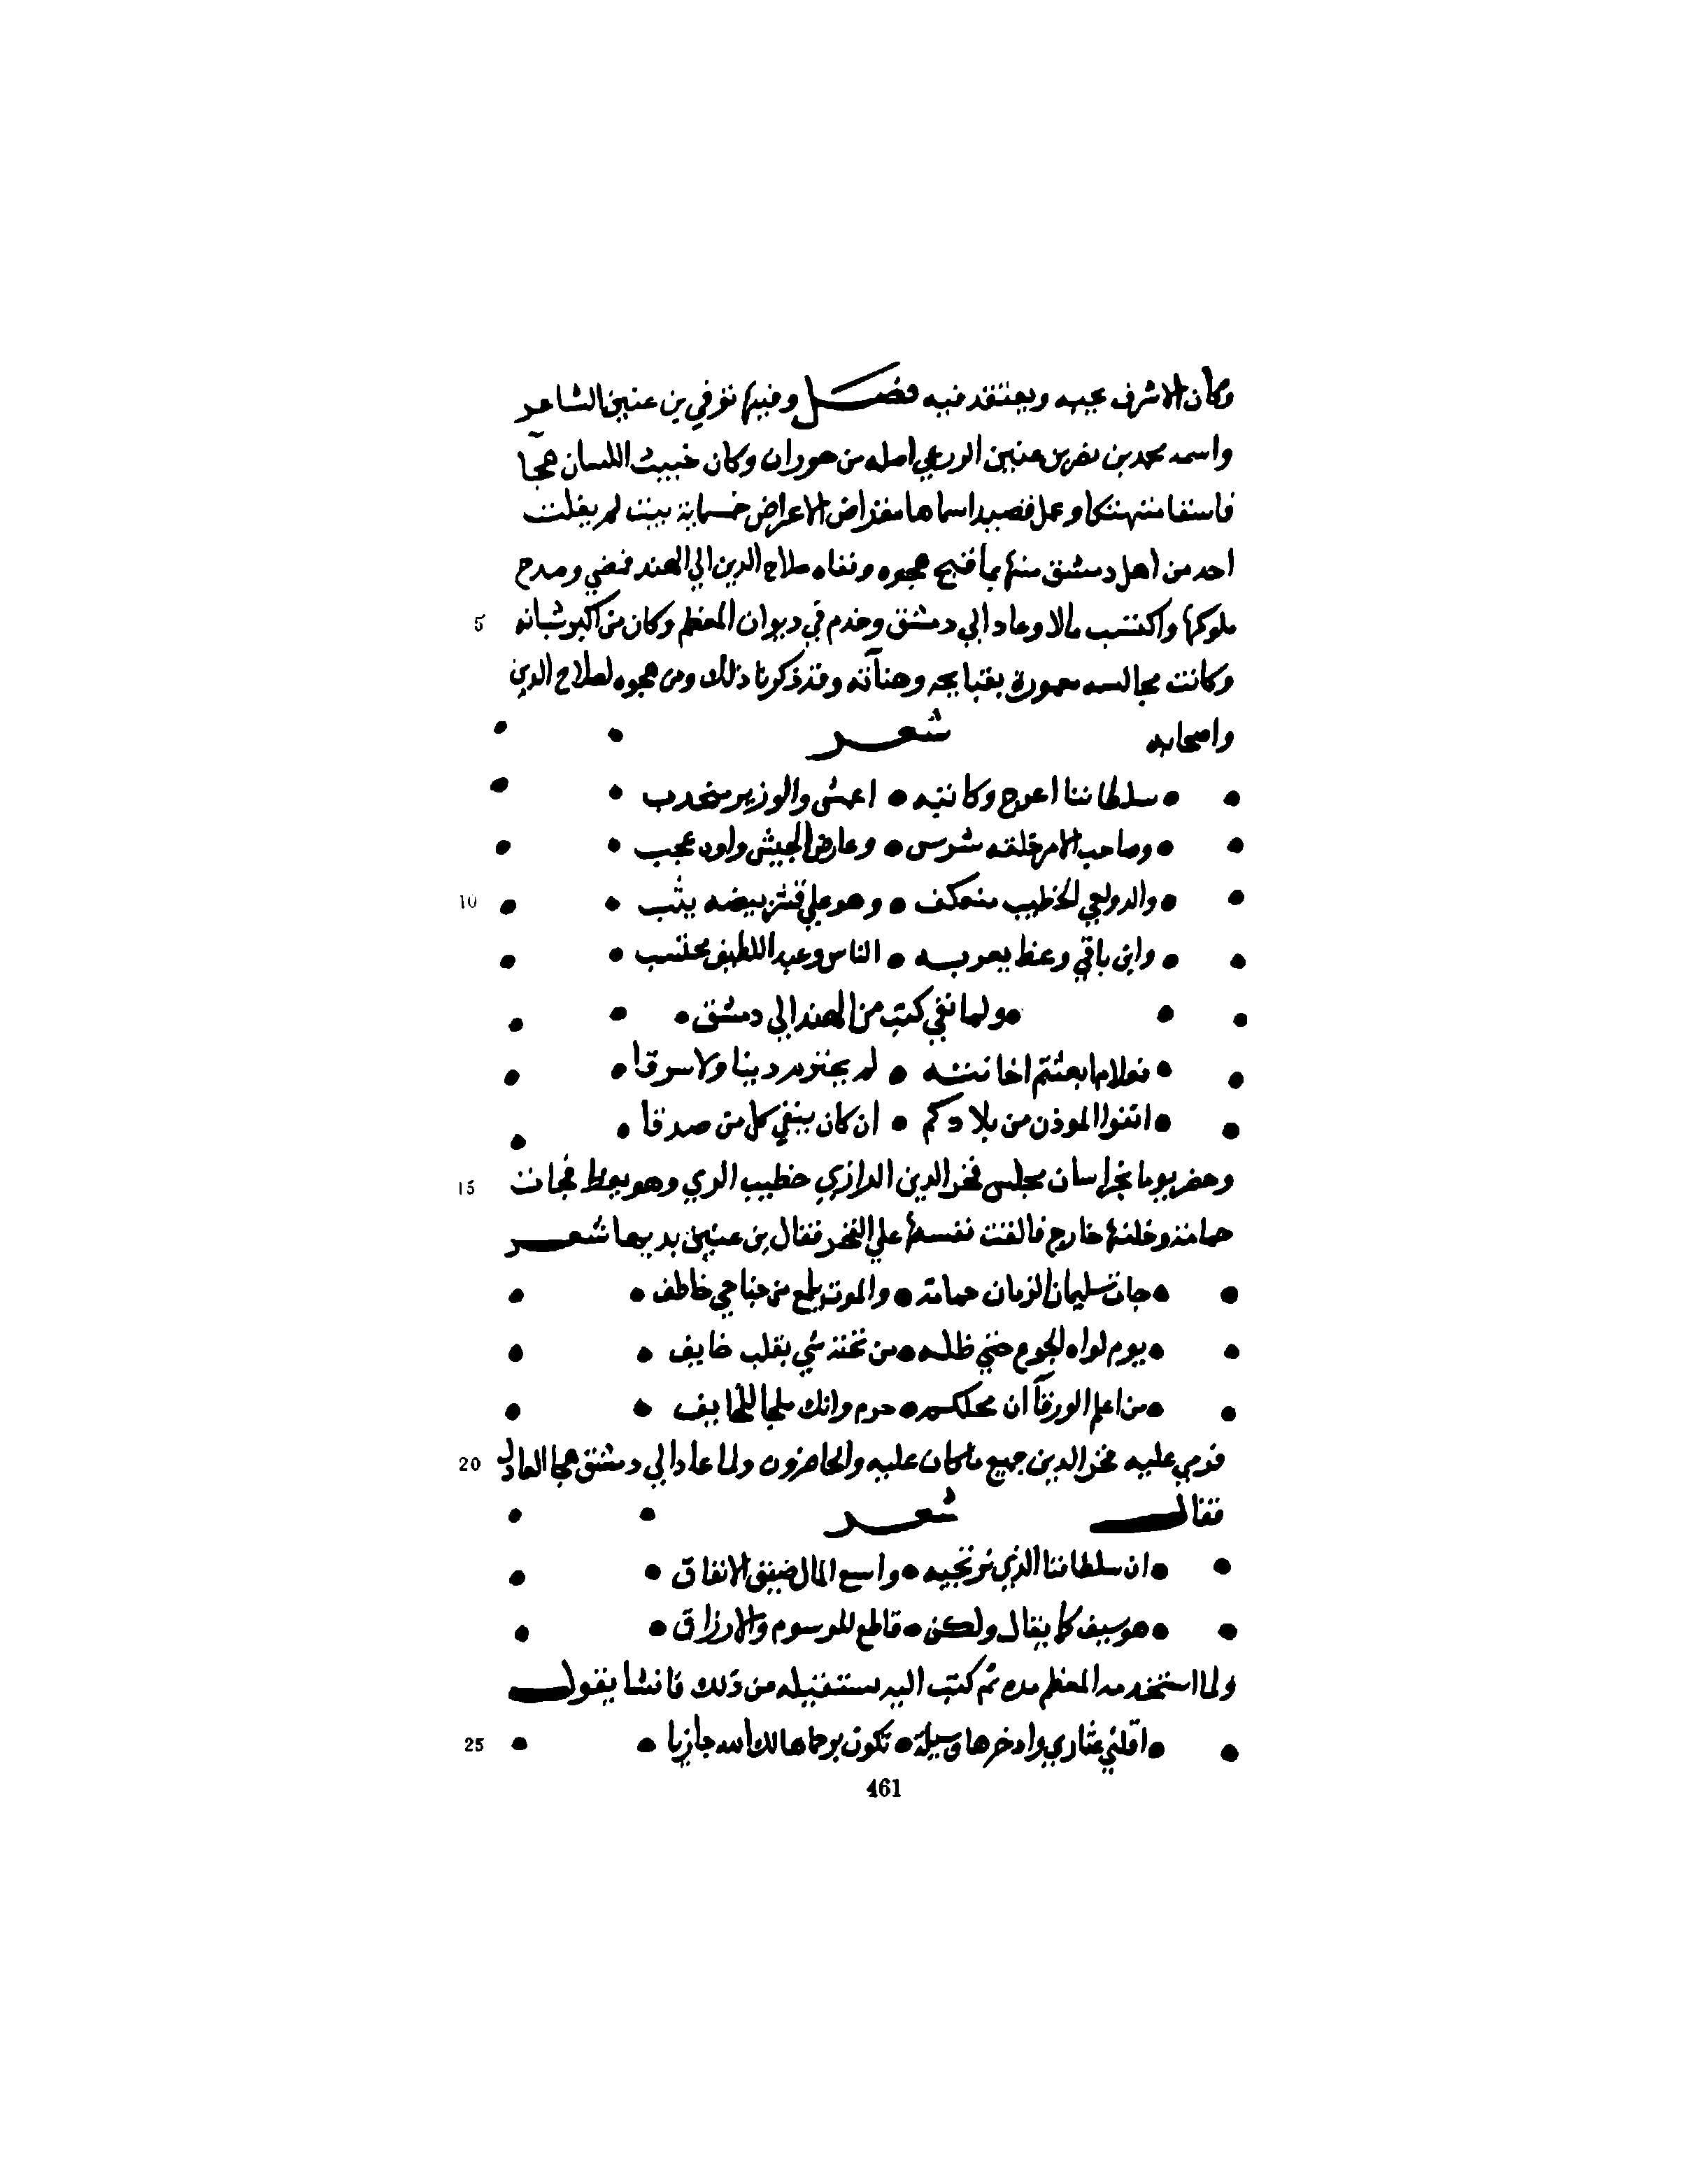 وكان الاشرف يحبه ويعتقد فيه فصـــل وفيها توفي بن عنين الشاعر
واسمه محمد بن نصر بن عنين الزرعي اصله من حوران وكان خبيث اللسان هجآ
فاسقا متهتكا وعمل قصيدا سماها مقراض الاعراض خمسماية بيت لم يفلت
احد من اهل دمشق منها باقبح هجوه ونفاه صلاح الدين الي الهند فمضي ومدح
5 ملوكها واكتسب مالا وعاد الي دمشق وخدم في ديوان المعظم وكان من اكبر
وكانت مجالسه معمورة بقبايحه وهنآته وقد ذكرنا ذلك ومن هجوه لصلاح الدين
واصحابه شعـــر
سلطاننا اعرج وكاتبه • اعمش والوزير منحدب
وصاحب الامر خلقه شرس • وعارض الجيش عجب
10 والدولعي الخطيب منعكف • وهو علي قشر بيضه يثب
وابن باقي وعظ يعرب به • الناس وعبد اللطيف محتسب
• ولما نفي كتب من الهند الي دمشق •
فعلاما بعثتم اخا ثقة • لم يجترم دينا ولا سرقا
انفوا الموذن من بلادكم • ان كان ينفي كل من صدقا
15 وحضر يوما بخراسان مجلس فخر الدين الرازي خطيب الري وهو يعظ فجات
حمامة وخلفها خارج فالقت نفسها علي الفخر فقال بن عنين بديها شعـــر
جات سليمان الزمان حمامة • والموت يلمع من جناحي خاطف
لواه الجوع حتي ظله • من تحته بقلب خايف
من اعلم الورقآ ان محلكم • حرم وانك ملجا للخايف
20 فرمي عليه فخر الدين جميع ما كان عليه والحاضرون ولما عاد الي دمشق هجا العادل
فقالـــ شعـــر
ان سلطاننا الذي نرتجيه • واسع المال ضيق الانفاق
هو سيف كما يقال ولكن • قاطع للرسوم والارزاق
ولما استخدمه المعظم مدة ثم كتب اليه يستقيله من ذلك فانشا يقولـــ
25 اقلني عثاري وادخرها وسيلة • تكون برحماها لك الله جازيا
461